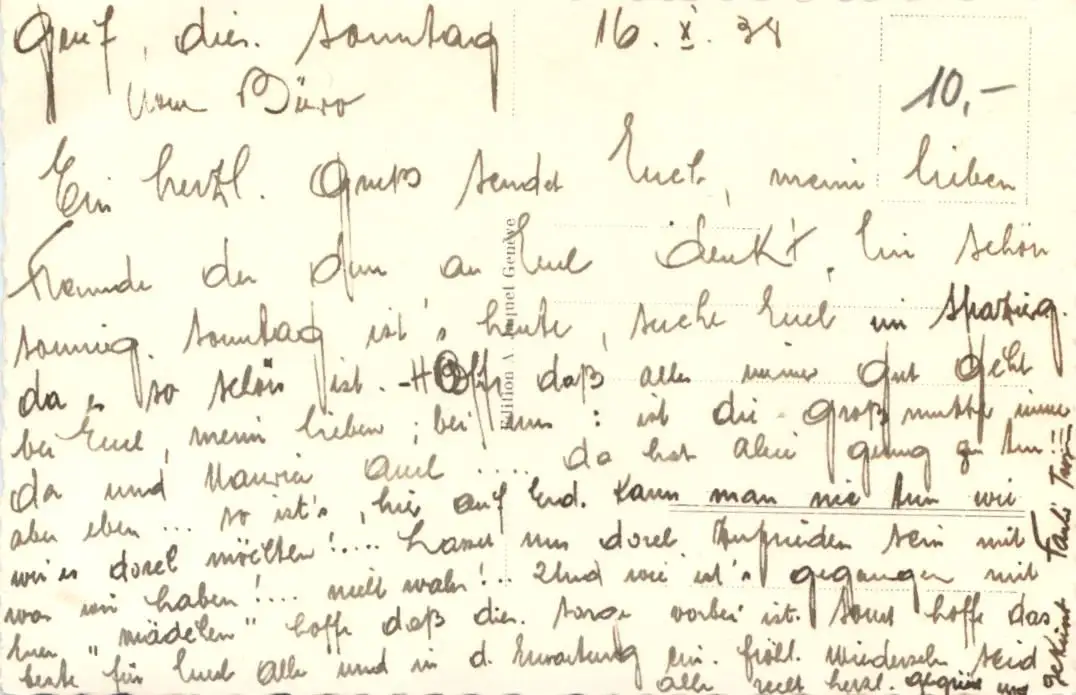 Genf, dies. Sonntag 16. X. 38
Vom Büro
10,-
Ein herzl. Gruß sendet Euch, meine lieben
Freunde der dem an Euch denkt, Ein schön
sonnig. Sonntag ist's heute, suche Euch im Spazierg.
da es so schön ist. - Hoffe daß alles immer gut geht
bei Euch, meine lieben; bei uns: ist die Großmutter immer
da und Maurice auch .... da hat Alice genug zu tun!!!
aber eben ... so ist's, hier auf Erd. Kann man nie tun wie
wir es doch möchten!.... Lasset uns doch zufrieden sein mit
was wir haben!... nicht wahr!.. Und wie ist's gegangen mit
Euren "mädelen" hoffe daß dies. Sorge vorbei ist. Sonst hoffe das
beste für Euch alle und in d. Erwartung ein. fröhl. Wiedersehn seid
alle recht herzl. gegrüßt und
geküsst
Edition A. Jaquet Genève